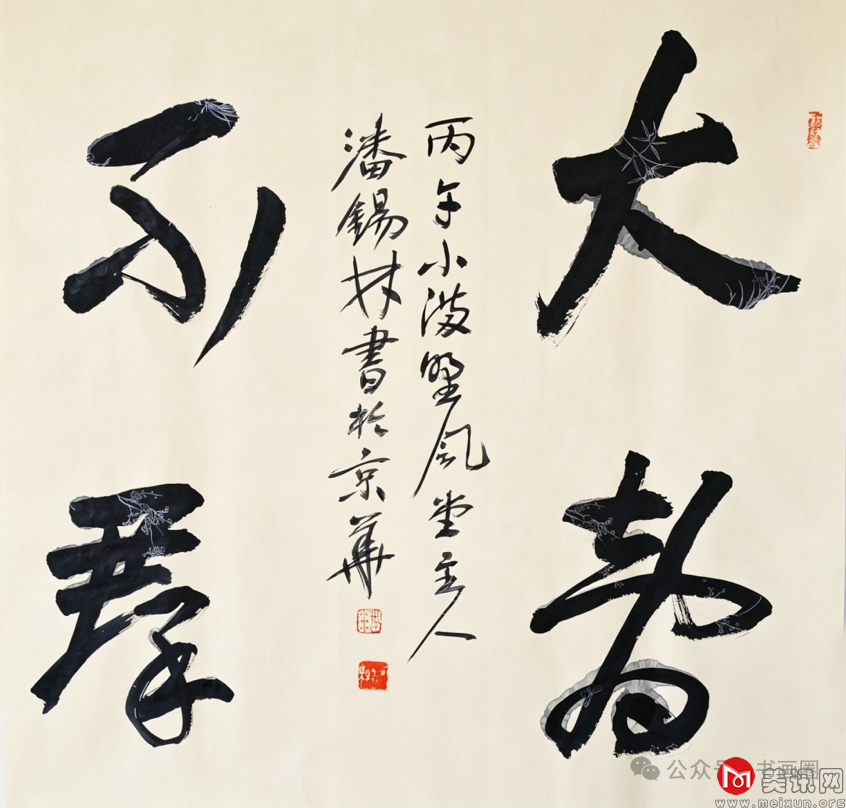 大
不
丙午小滿風堂主人
潘錫林書於京華
公众号 · 书画圈
美讯网
www.meixun.org